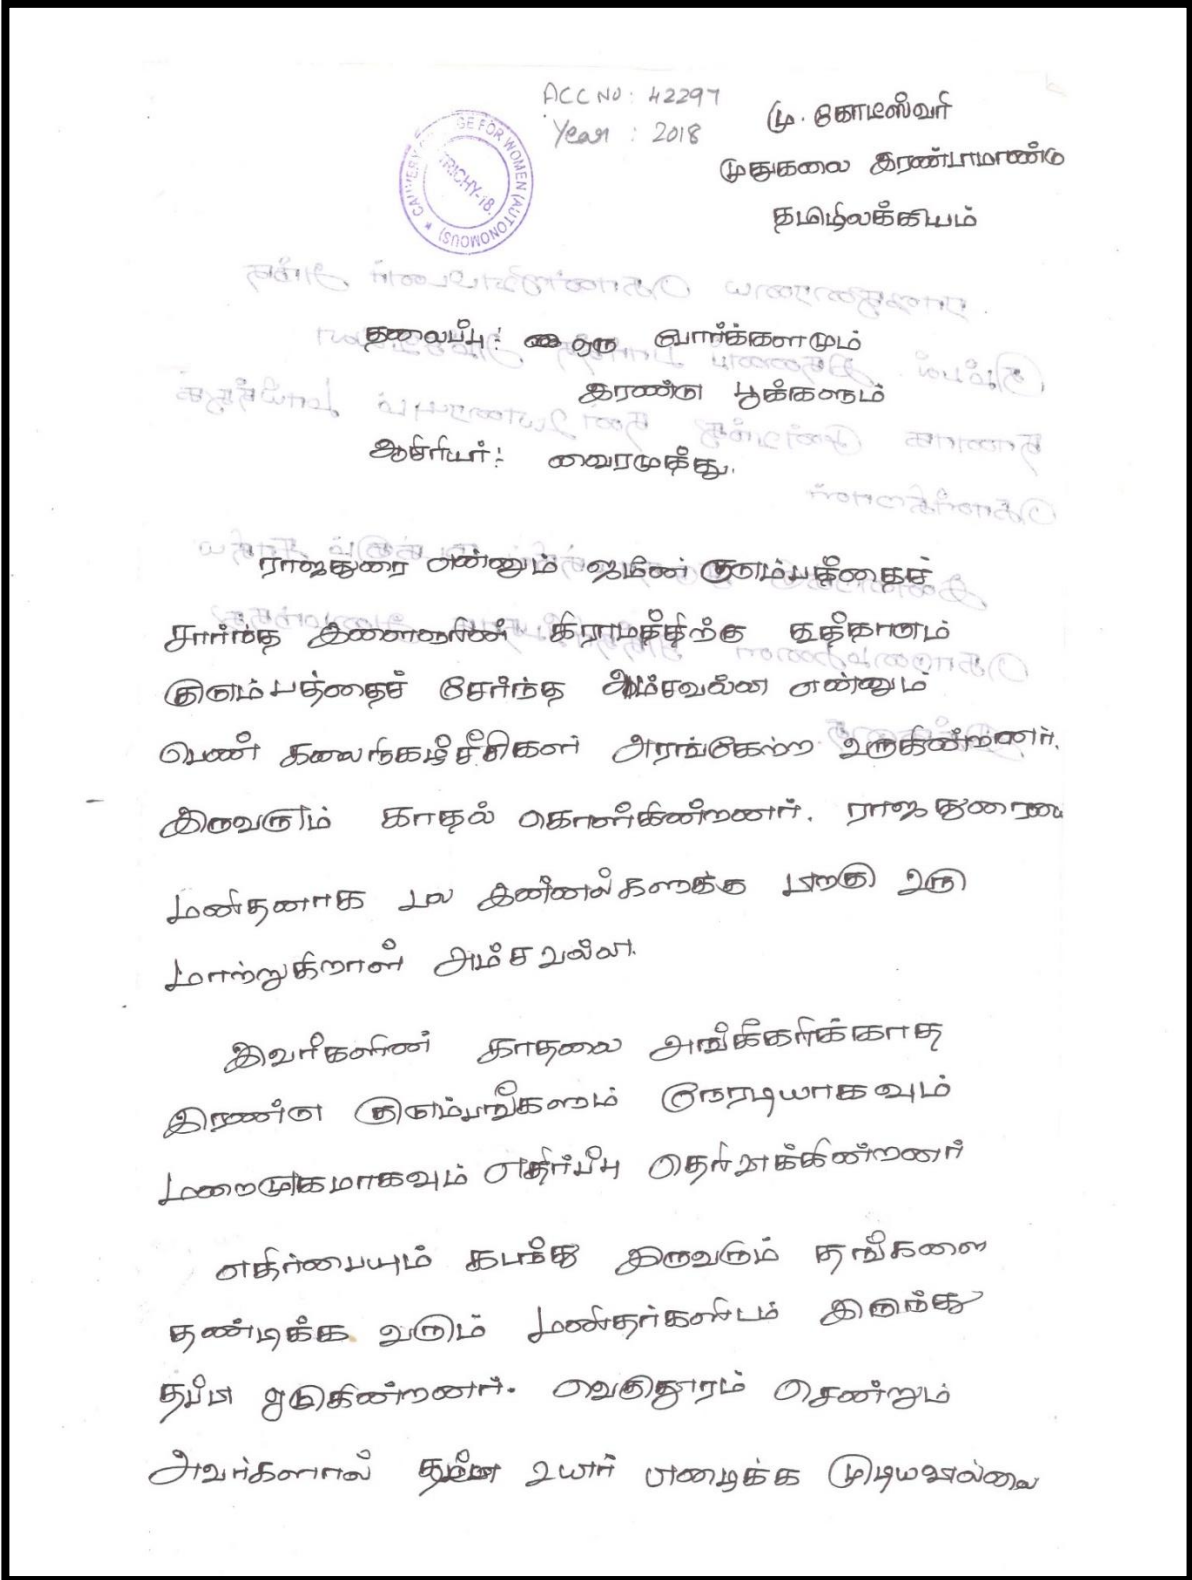 ACC NO: 42297
Year : 2018
CAUVERY COLLEGE FOR WOMEN (AUTONOMOUS) ★
TRICHY-18.
மு. கோடீஸ்வரி
முதுகலை இரண்டாமாண்டு
தமிழிலக்கியம்
தலைப்பு: ஒரு போர்க்களமும்
இரண்டு பூக்களும்
ஆசிரியர்: வைரமுத்து.
ராஜதுரை என்னும் ஜமீன் குடும்பத்தைச்
சார்ந்த இளைஞரின் கிராமத்திற்கு
குடும்பத்தைச் சேர்ந்த அம்சவல்லி என்னும்
பெண் கலைநிகழ்ச்சிகள் அரங்கேற்ற வருகின்றனர்.
இருவரும் காதல் கொள்கின்றனர். ராஜதுரையை
மனிதனாக பல இன்னல்களுக்கு பிறகு உரு
மாற்றுகிறாள் அம்சவல்லி.
இவர்களின் காதலை அங்கீகரிக்காத
இரண்டு குடும்பங்களும் நேரடியாகவும்
மறைமுகமாகவும் எதிர்ப்பு தெரிவிக்கின்றனர்
எதிர்பையும் கடந்து இருவரும் தங்களை
தண்டிக்க வரும் மனிதர்களிடம் இருந்து
தப்பி ஓடுகின்றனர். வெகுதூரம் சென்றும்
அவர்களால் தப்பி உயிர் பிழைக்க முடியவில்லை